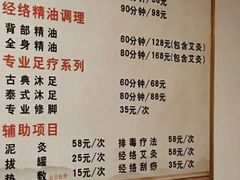 90分钟/98元
经络精油调理
背部精油 60分钟/128元(包含艾灸)
全身精油 80分钟/168元(包含艾灸)
专业足疗系列
古典沐足 60分钟/68元
泰式沐足 80分钟/88元
专业修脚 35元
辅助项目
泥灸 58元/次 排毒疗法 58元/次
拔罐 25元/次 经络艾灸 58元/次
热敷 15元/次 经络刮痧 35元/次